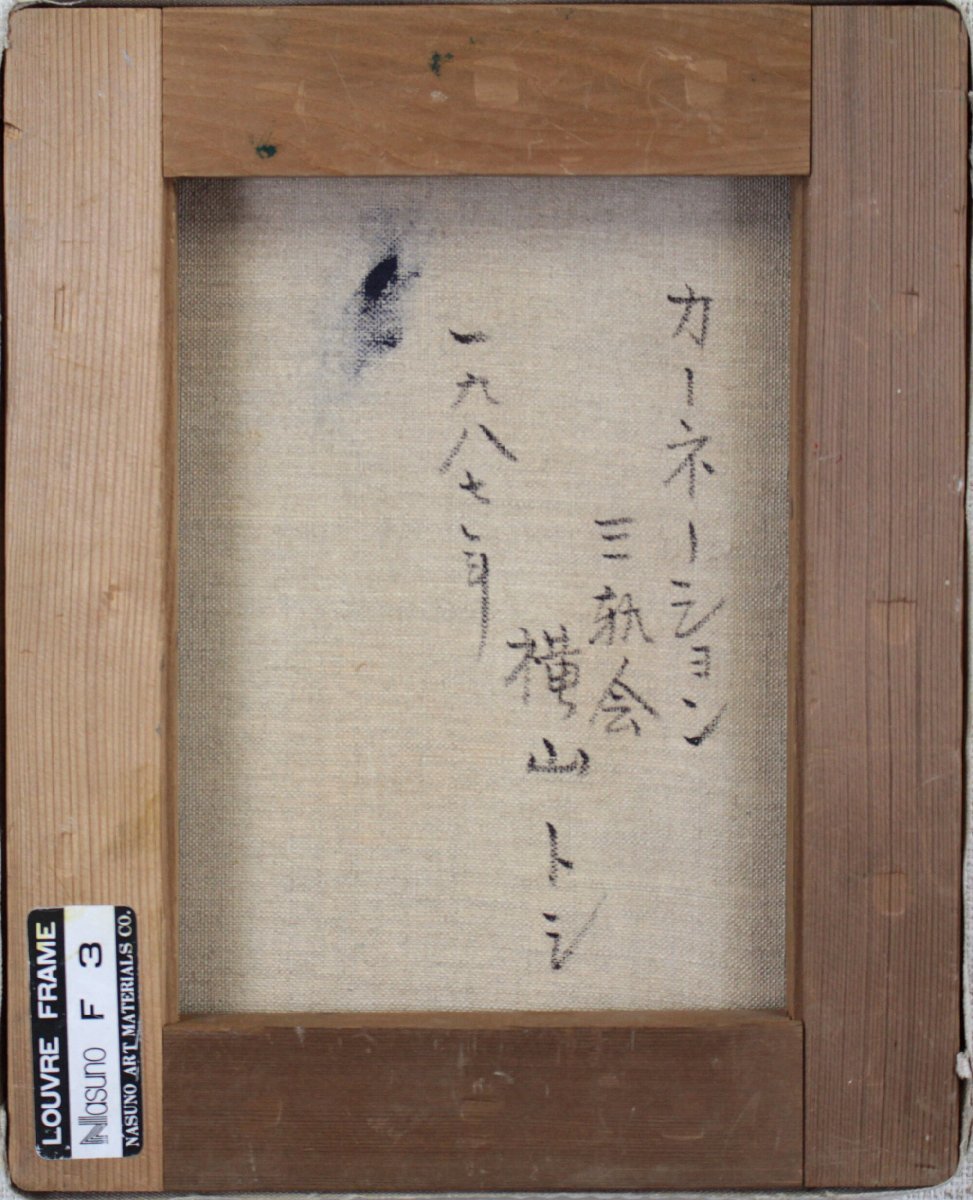 カーネーション
三軌会
横山トシ
一九八七年
LOUVRE FRAME
Nasuno F 3
NASUNO ART MATERIALS CO.